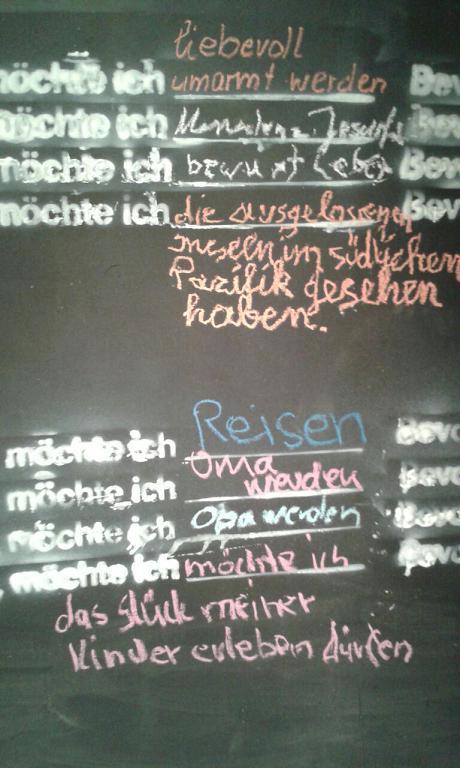 liebevoll
möchte ich umarmt werden Bev
möchte ich Bev
möchte ich bewusst leben Bev
möchte ich die ausgelassenen Bev
inseln im südlichen
Pazifik gesehen
haben.
möchte ich Reisen Bevo
möchte ich Oma werden Bevo
möchte ich Opa werden Bevo
möchte ich möchte ich Bevo
das Glück meiner
Kinder erleben dürfen